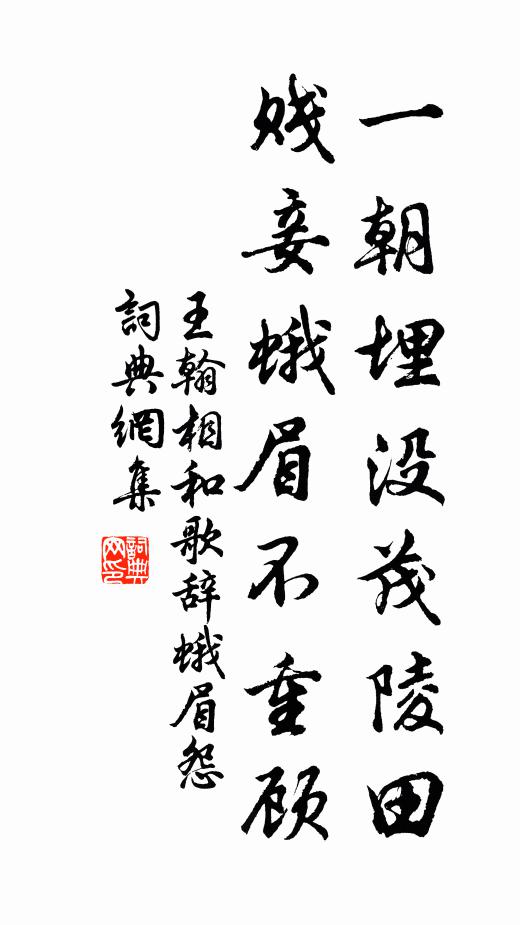 一朝埋没茂陵田
贱妾蛾眉不重顾
王翰相和歌辞蛾眉怨
詞典網集
詞典网印